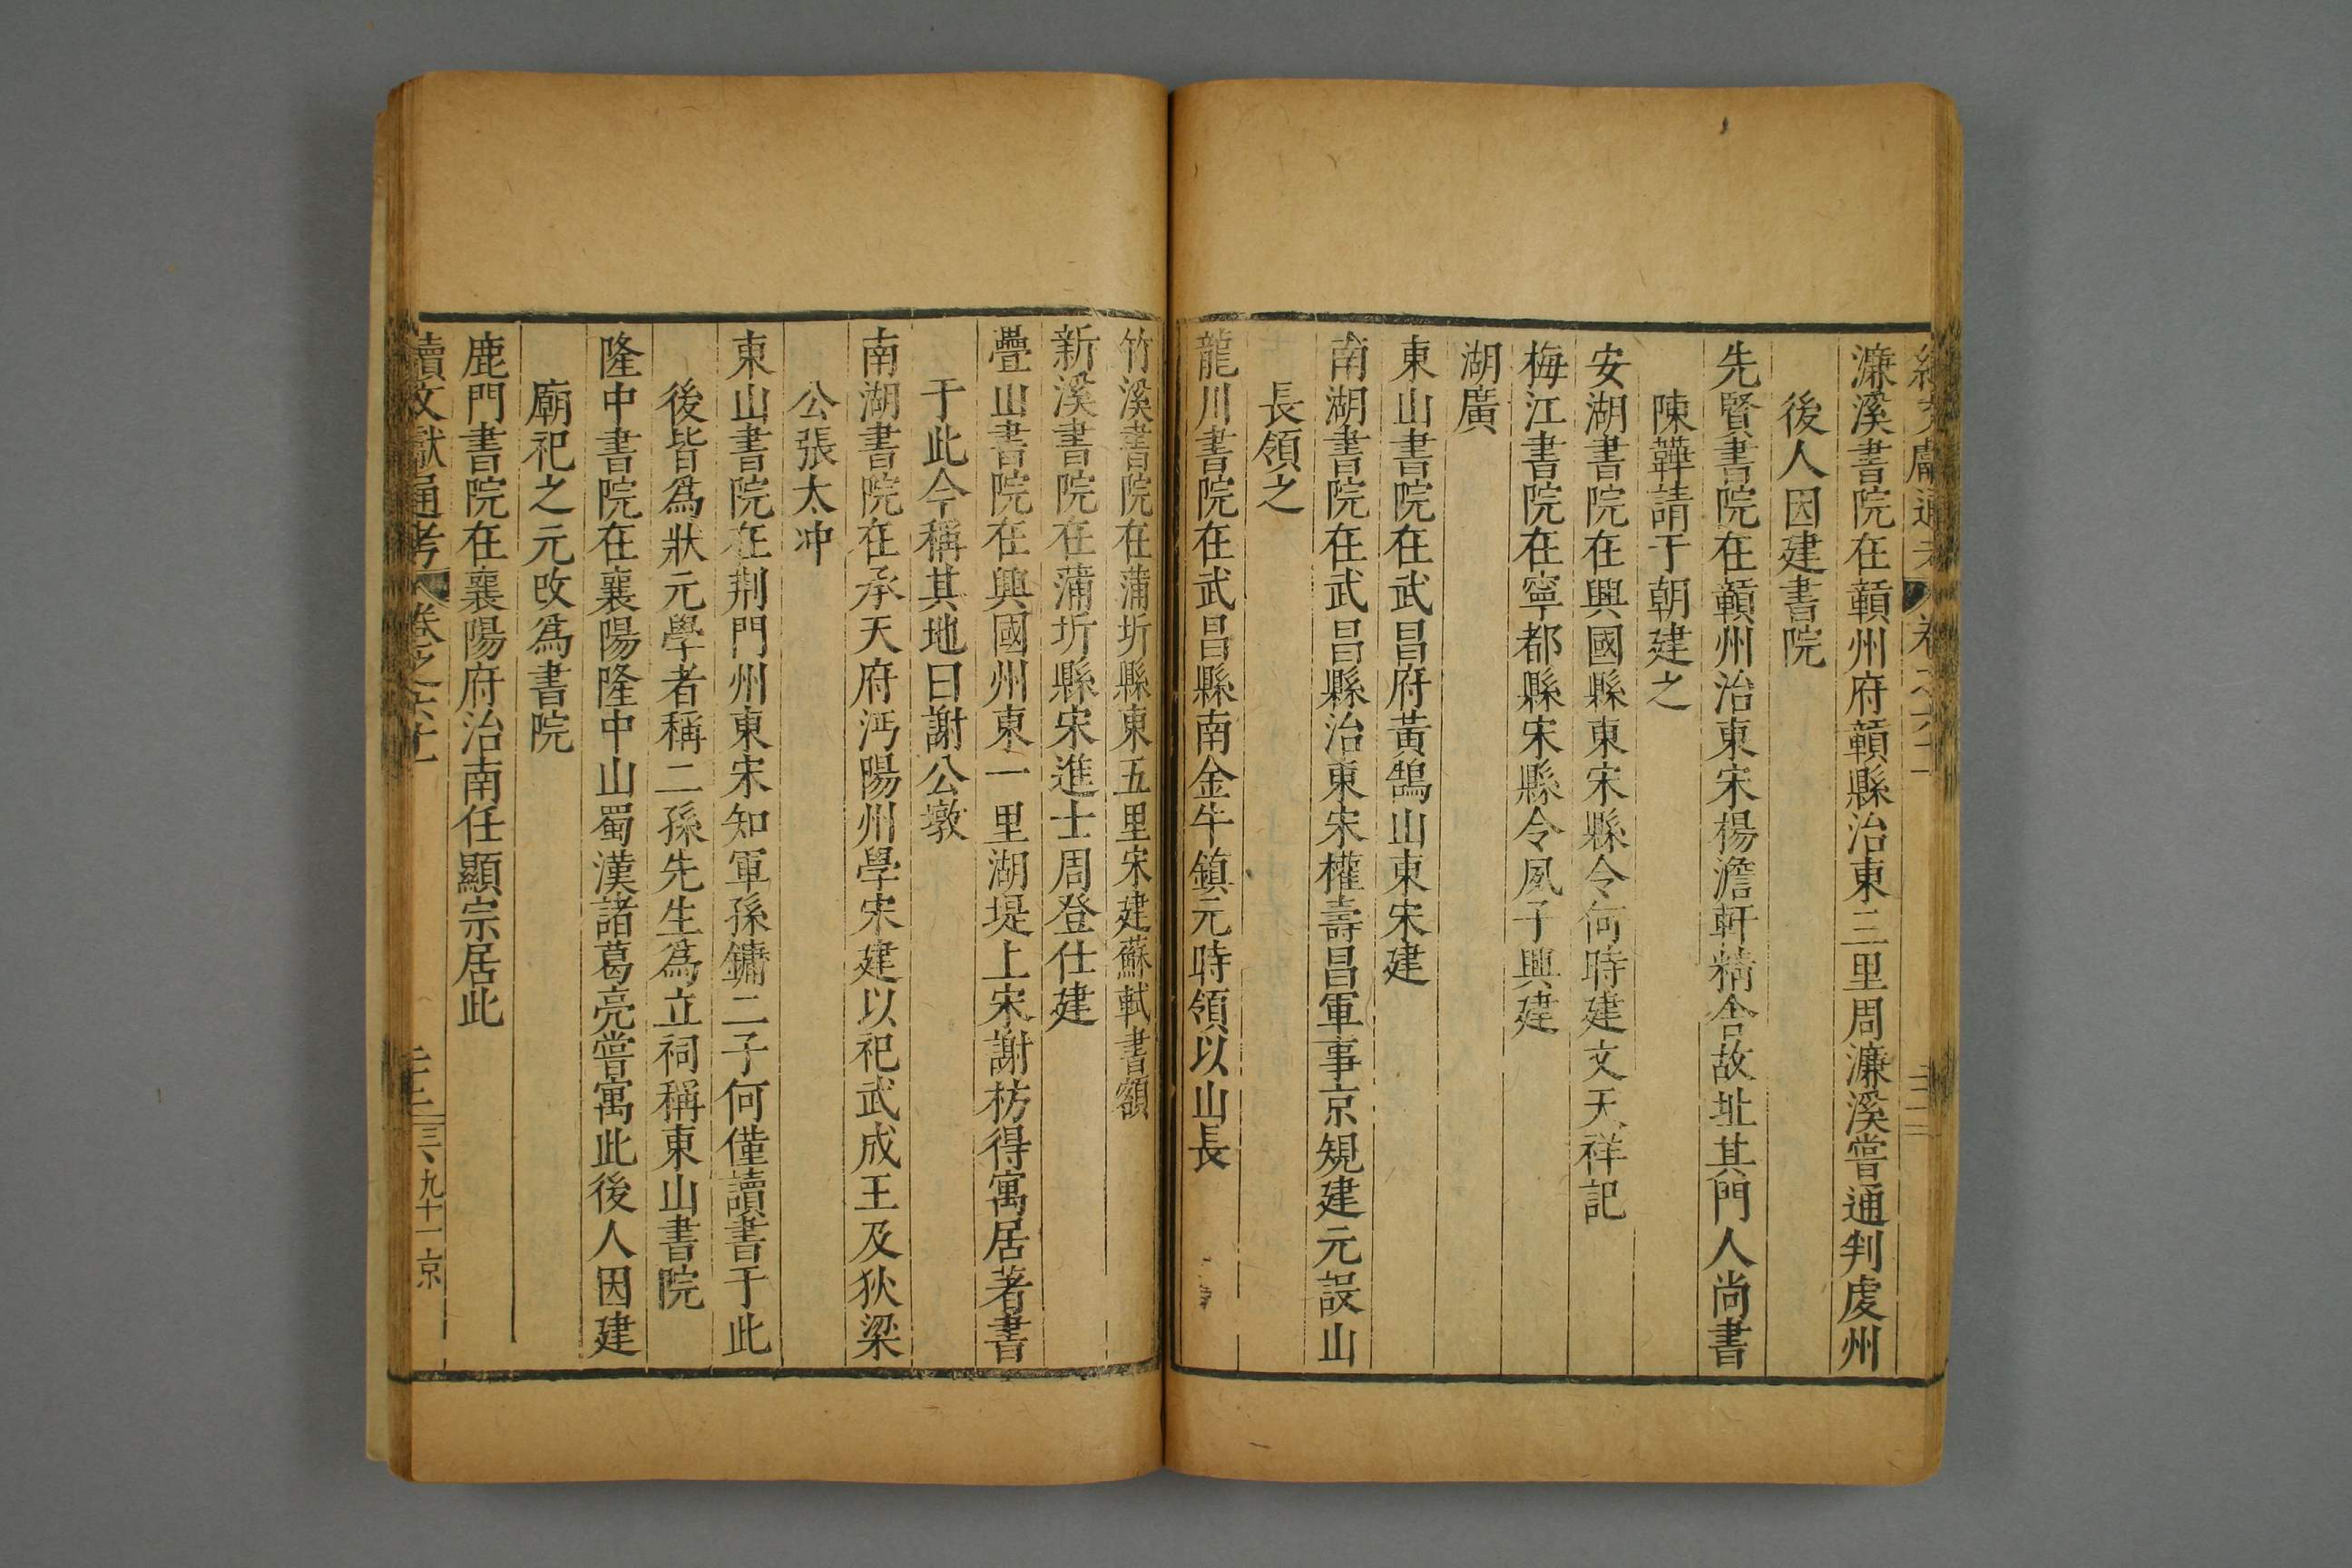 濂溪書院在贑州府贑縣治東三里周濂溪嘗通判虔州
後人因建書院
先賢書院在贑州治東宋楊澹軒精舎故址其門人尚書
陳韡請于朝建之
安湖書院在興國縣東宋縣令何時建文天祥記
梅江書院在寧都縣宋縣令夙子興建
湖廣
東山書院在武昌府黃鵠山東宋建
南湖書院在武昌縣治東宋權壽昌軍事京規建元設山
長領之
龍川書院在武昌縣南金牛鎮元時領以山長
竹溪書院在蒲圻縣東五里宋建蘇軾書額
新溪書院在蒲圻縣宋進士周登仕建
疊山書院在興國州東一里湖堤上宋謝枋得寓居著書
于此今稱其地曰謝公墩
南湖書院在承天府沔陽州學宋建以祀武成王及狄梁
公張太冲
東山書院在荆門州東宋知軍孫鏞二子何僅讀書于此
後皆爲狀元學者稱二孫先生爲立祠稱東山書院
隆中書院在襄陽隆中山蜀漢諸葛亮嘗寓此後人因建
廟祀之元改爲書院
鹿門書院在襄陽府治南任顯宗居此
續文獻通考 卷之六十一
三九十一京